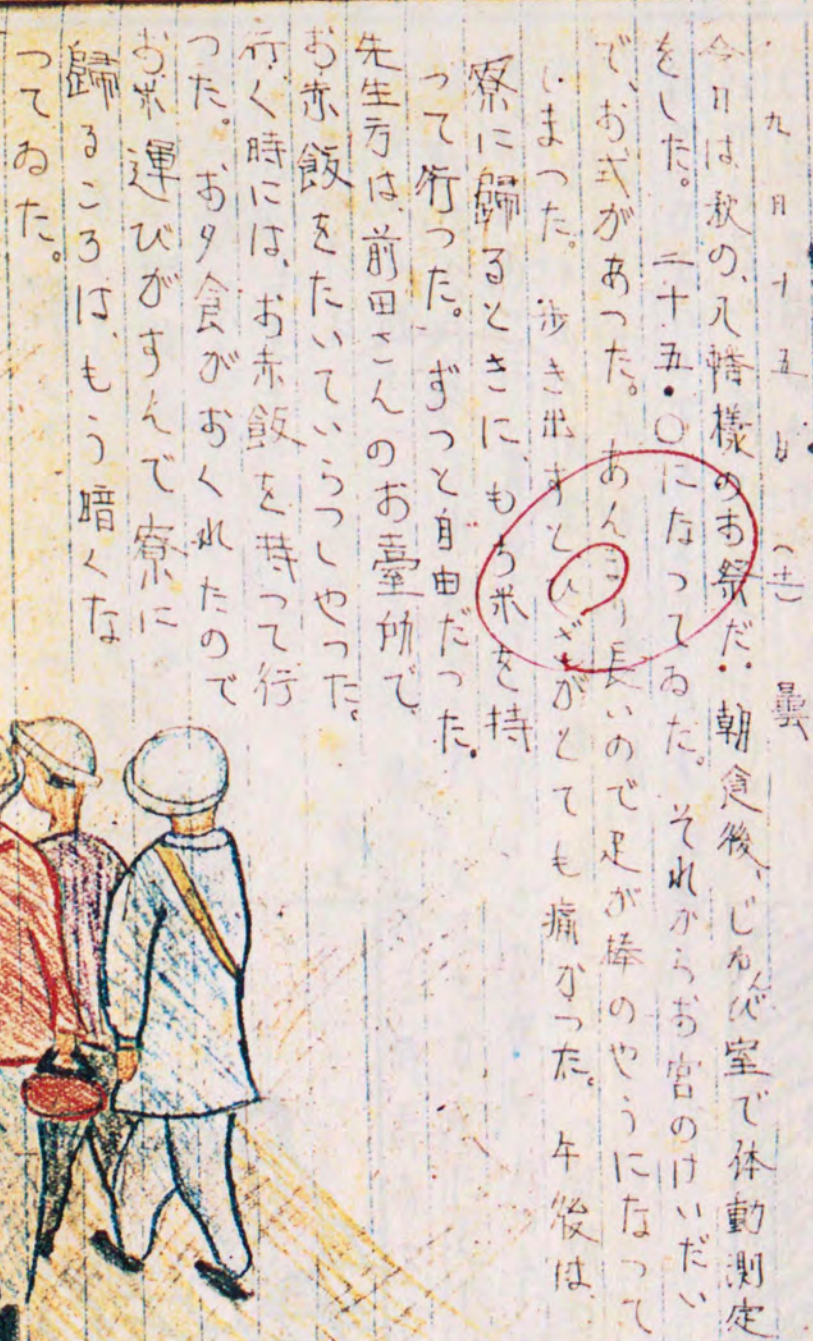 九月十五日(土)曇
今日は秋の、八幡様のお祭だ。朝食後、じゅんび室で体動測定
をした。二十五・〇になってゐた。それからお宮のけいだい
で、お式があった。あんまり長いので足が棒のやうになって
しまった。歩き出すとひざがとても痛かった。午後は、
寮に歸るときに、もち米を持
って行った。ずっと自由だった。
先生方は、前田さんのお臺所で、
お赤飯をたいていらっしやった。
行く時には、お赤飯を持って行
った。お夕食がおくれたので
お米運びがすんで寮に
歸るころは、もう暗くな
ってゐた。